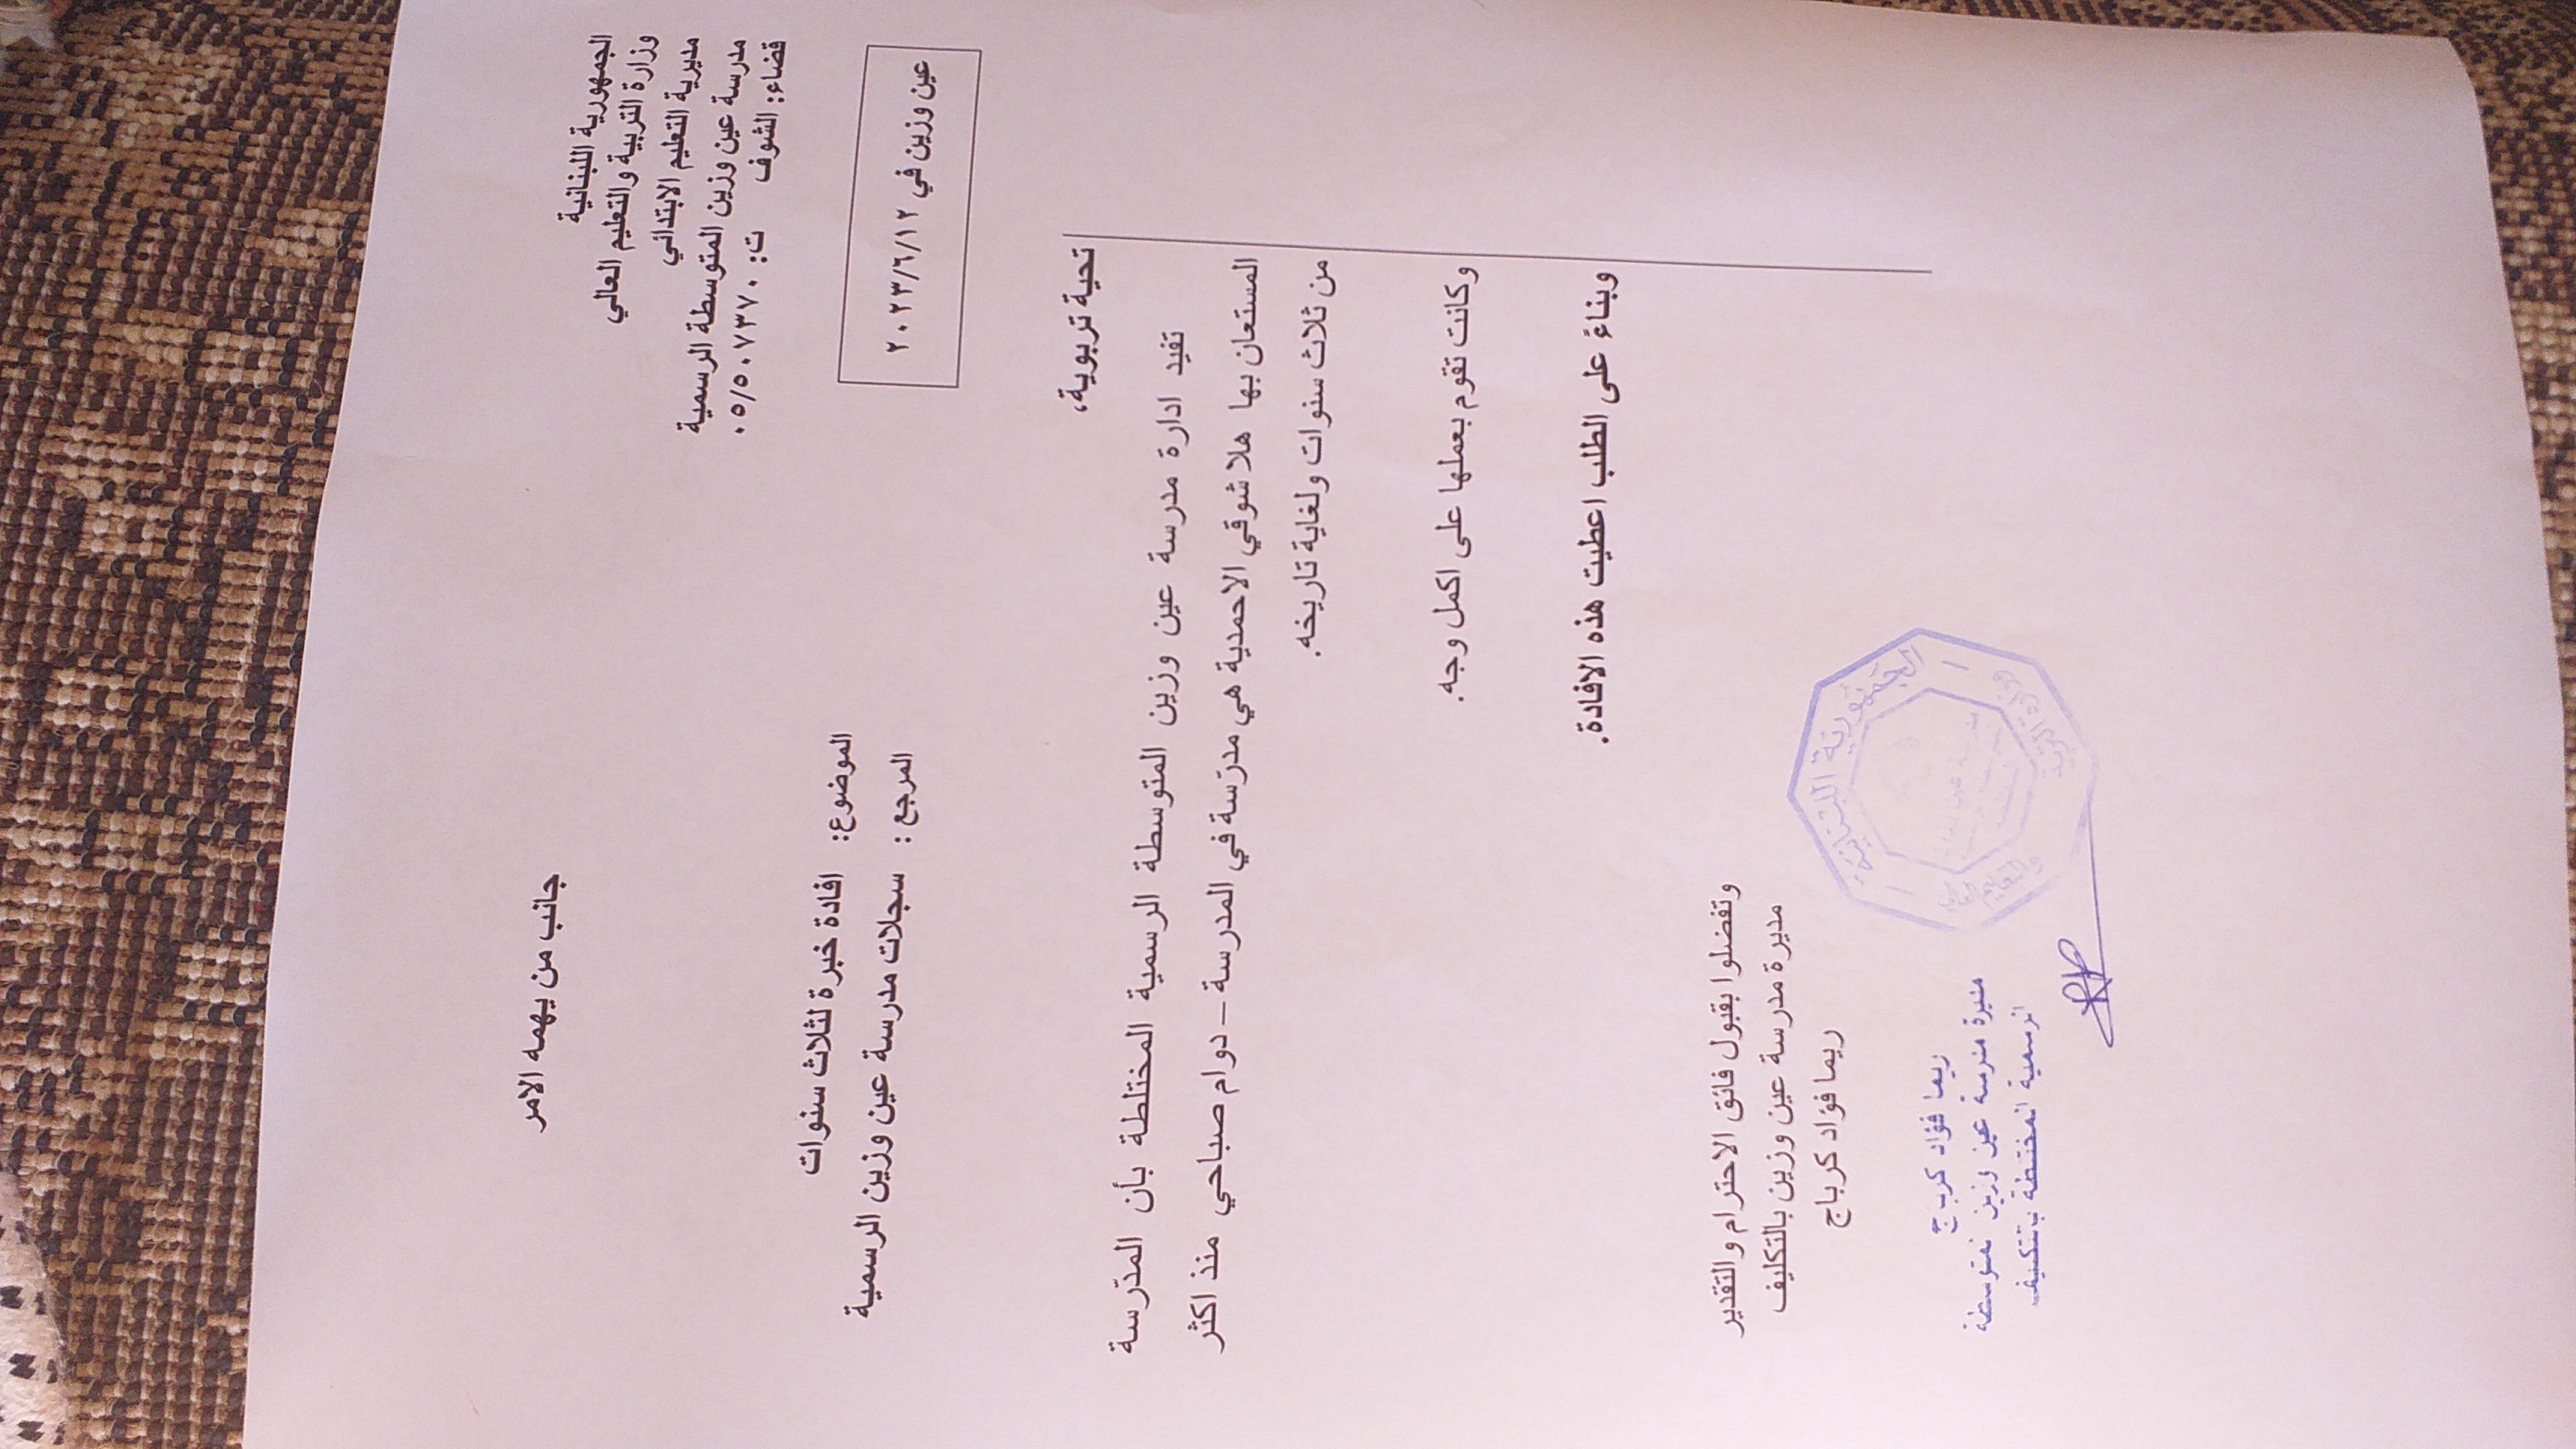 الجمهورية اللبنانية
وزارة التربية والتعليم العالي
مديرية التعليم الابتدائي
مدرسة عين وزين المتوسطة الرسمية
قضاء: الشوف ت: ٠٥/٥٠٧٣٧٠
عين وزين في ٢٠٢٣/٦/١٢
جانب من يهمه الامر
الموضوع: افادة خبرة لثلاث سنوات
المرجع : سجلات مدرسة عين وزين الرسمية
تحية تربوية،
تفيد ادارة مدرسة عين وزين المتوسطة الرسمية المختلطة بأن المدّرسة
المستعان بها هلا شوقي الاحمدية هي مدرّسة في المدرسة – دوام صباحي منذ اكثر
من ثلاث سنوات ولغاية تاريخه.
وكانت تقوم بعملها على اكمل وجه.
وبناءً على الطلب اعطيت هذه الافادة.
وتفضلوا بقبول فائق الاحترام والتقدير
مديرة مدرسة عين وزين بالتكليف
ريما فؤاد كرباج
الجمهورية اللبنانية
وزارة التربية
والتعليم
ريما فؤاد كرباج
مديرة مدرسة عين وزين المتوسطة
الرسمية المختلطة بالتكليف